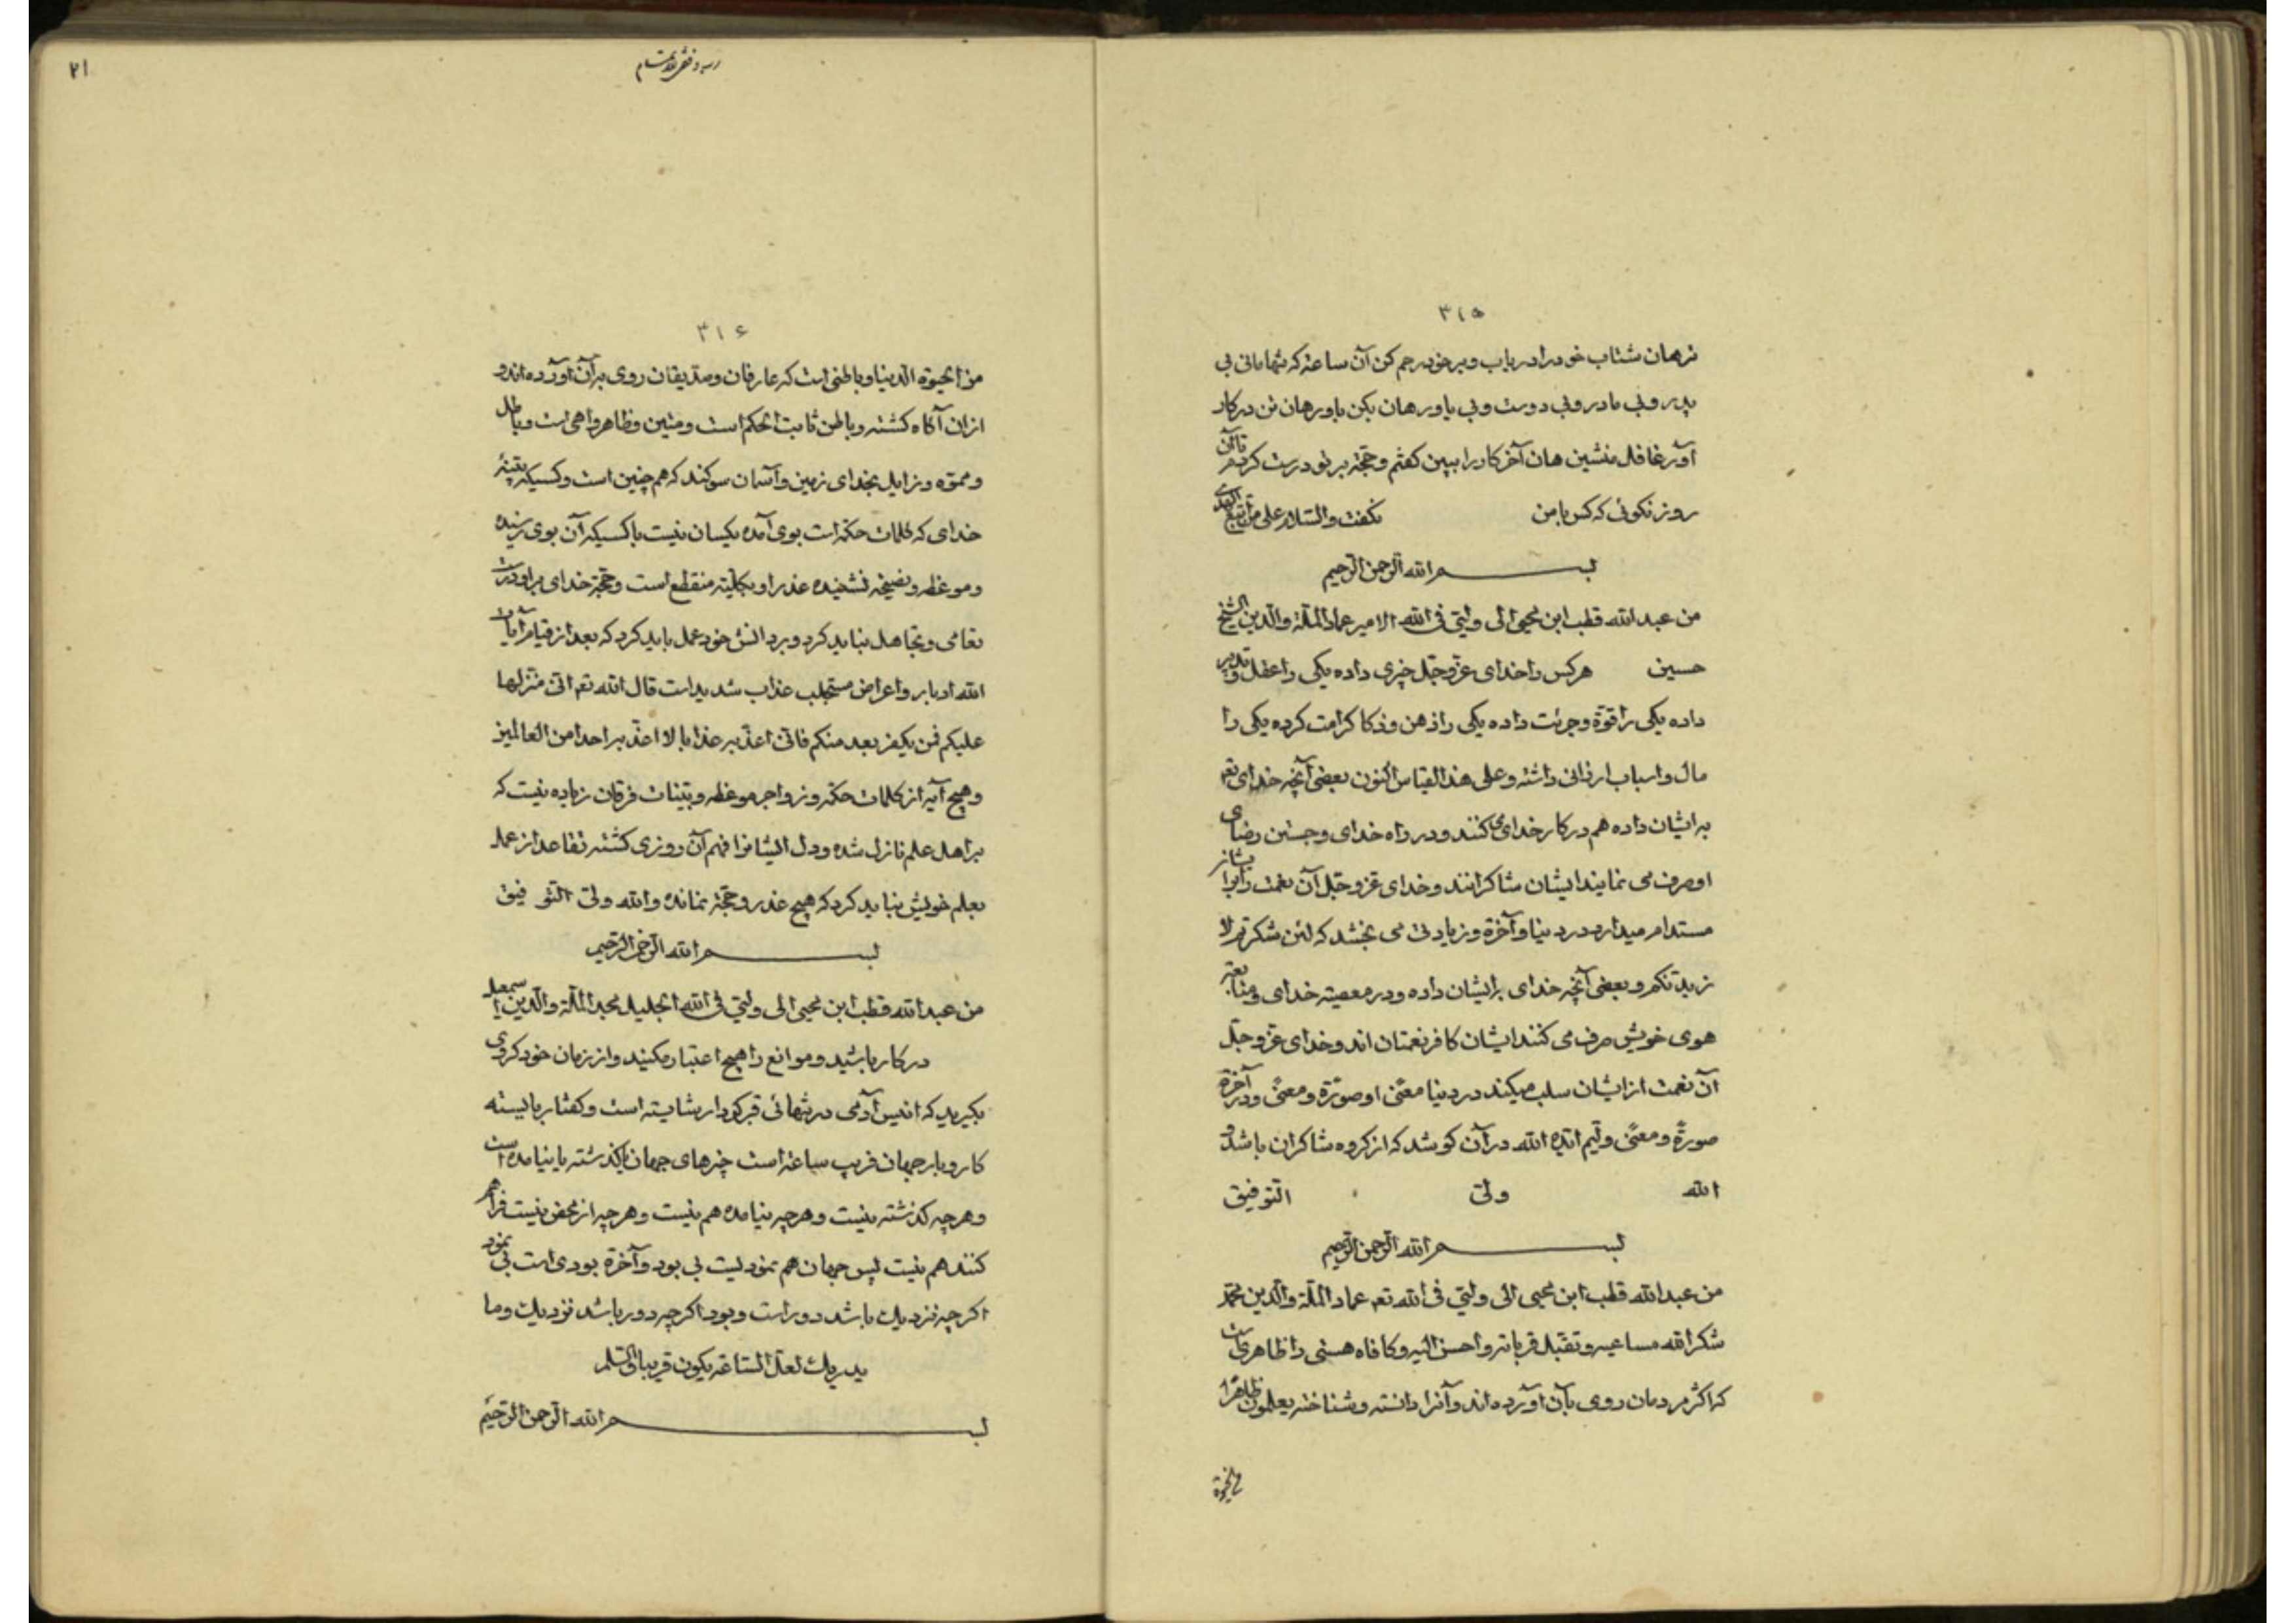 ۳۱۵
زهان شتاب خود را دریاب و بر خود رحم کن آن ساعة که تنها مانی بی
پدر و بی مادر و بی دوست و بی یاور هان بکن باور هان تن در کار
آور غافل منشین هان آخر کار را ببین کفتم و حجّة بر تو درست کردم تا آن
روز نکوئی که کس با من نکفت والسّلام علی من اتّبع الهدی
بسم الله الرّحمن الرّحیم
من عبدالله قطب ابن محیی الی ولیّی فی الله الامیر عماد الملّة والدّین الشیخ
حسین هر کس را خدای عزّ و جلّ چیزی داده یکی را عقل و تدبیر
داده یکی را قوّة و جرئت داده یکی را ذهن و ذکا کرامت کرده یکی را
مال و اسباب ارزانی داشته و علی هذا القیاس اکنون بعضی آنچه خدای تعم
به ایشان داده هم در کار خدای می کنند و در راه خدای و جستن رضای
او صرف می نمایند ایشان شاکرانند و خدای عزّ و جلّ آن نعمت را بر ایشان
مستدام میدارد در دنیا و آخرة و زیادتی می بخشد که لئن شکرتم لا
زیدنّکم و بعضی آنچه خدای بر ایشان داده و در معصیة خدای و متابعة
هوی خویش صرف می کنند ایشان کافر نعمتان اند و خدای عزّ و جلّ
آن نعمت از ایشان سلب میکند در دنیا معنًی او صورًة و معنًی و در آخرة
صورًة و معنًی ولیم ایّده الله در آن کوشد که از کروه شاکران باشد و
الله ولیّ التّوفیق
بسم الله الرّحمن الرّحیم
من عبدالله قطب ابن محیی الی ولیّی فی الله تعم عماد الملّة والدّین محمّد
شکر الله مساعیه و تقبّل قرباته و احسن الیه و کافاه هستی را ظاهری است
که اکثر مردمان روی بآن آورده اند و آنرا دانسته و شناخته یعلمون ظاهرًا
من الحیوة
۲۱
۳۱۶
من الحیوة الدّنیا و باطنی است که عارفان و صدّیقان روی بر آن آورده اند و
از ان آکاه کشته و باطن ثابت الحکم است و متین و ظاهر واهی است و باطل
و مموّه و زایل بخدای زمین و آسمان سوکند که هم چنین است و کسیکه بیّنهٔ
خدای که کلمات حکمة است بوی آمده یکسان نیست با کسیکه آن بوی نرسیده
و موعظه و نصیحة نشنیده عذر او بکلّیّة منقطع است و حجّة خدای بر او درست
تعامی و تجاهل نباید کرد و بر دانش خود عمل باید کرد که بعد از قیام آیات
الله ادبار و اعراض مستجلب عذاب شدید است قال الله تعم انّی منزلها
علیکم فمن یکفر بعد منکم فانّی اعذّبه عذابا لا اعذّبه احدا من العالمین
و هیچ آیه از کلمات حکمة و زواجر موعظه و بیّنات فرقان زیاده نیست که
بر اهل علم نازل شده و دل ایشانرا فهم آن روزی کشته تقاعد از عمل
بعلم خویش نباید کرد که هیچ عذر و حجّة نمانده والله ولیّ التّوفیق
بسم الله الرّحمن الرّحیم
من عبدالله قطب ابن محیی الی ولیّی فی الله الجلیل مجد الملّة والدّین اسمعیل
در کار باشید و موانع را هیچ اعتبار مکنید و از زمان خود کروی
بکیرید که انیس آدمی در تنهائی قبر کردار شایسته است و کفتار بایسته
کار و بار جهان فریب ساعة است چیزهای جهان یا کذشته یا نیامده است
و هر چه کذشته نیست و هر چه نیامده هم نیست و هر چه از محض نیست فراهم
کنند هم نیست پس جهان هم نمودیست بی بود و آخرة بودی است بی نمود
اکر چه نزدیک باشد دور است و بود اکر چه دور باشد نزدیک و ما
یدریک لعلّ السّاعة یکون قریبا والسّلم
بسم الله الرّحمن الرّحیم